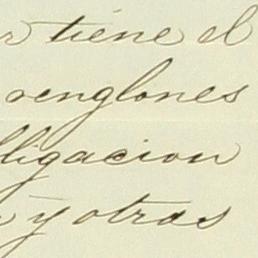 r tiene el
renglones
lligacion
y otras